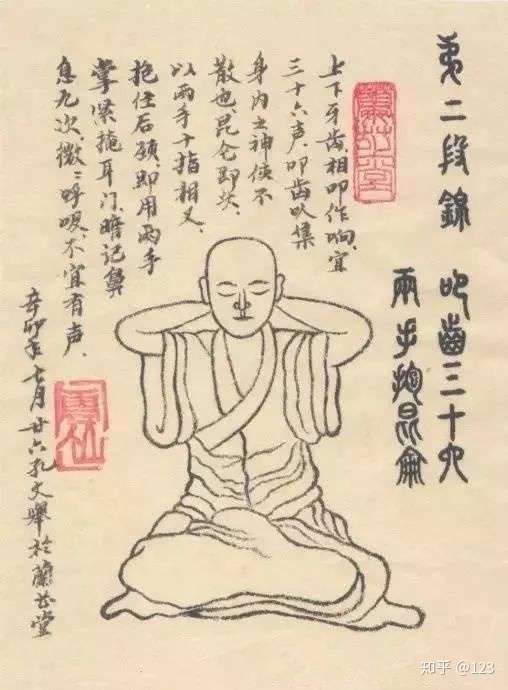 第二段锦 叩齒三十六
兩手抱昆侖
上下牙齿,相叩作响,宜
三十六声,叩齿以集
身内之神使不
散也昆仑即头,
以两手十指相叉,
抱住后颈,即用两手
掌紧掩耳门,暗记鼻
息九次,微〻呼吸,不宜有声.
辛卯年七月廿六孔文舉於蘭台堂
知乎 @123